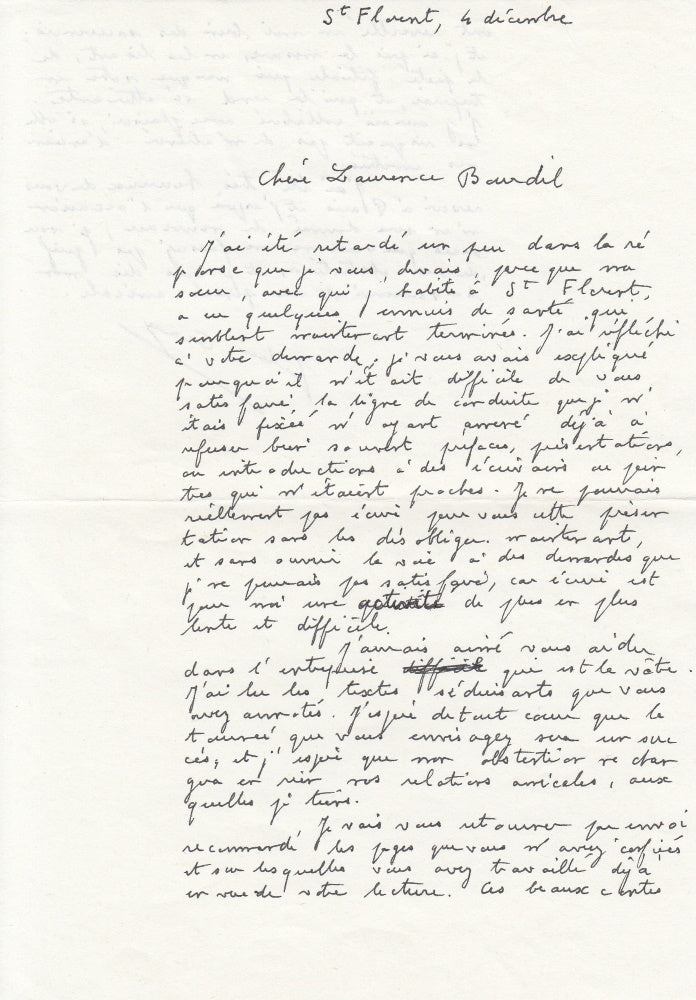 St Florent, 4 décembre
Chère Laurence Bourdil
J'ai été retardé un peu dans la ré
ponse que je vous devais, parce que ma
sœur, avec qui j'habite à St Florent,
a eu quelques ennuis de santé qui
semblent maintenant terminés. J'ai réfléchi
à votre demande. je vous avais expliqué
pourquoi il m'était difficile de vous
satisfaire, la ligne de conduite que je m'
étais fixée m'ayant amené déjà à
refuser bien souvent préfaces, présentations,
ou introductions à des écrivains ou pein
tres qui m'étaient proches. Je ne pouvais
réellement pas écrire pour vous cette présen
tation sans les désobliger maintenant,
et sans ouvrir la voie à des demandes que
je ne pourrais pas satisfaire, car écrire est
pour moi une activité de plus en plus
lente et difficile.
J'aurais aimé vous aider
dans l'entreprise difficile qui est la vôtre.
J'ai lu les textes séduisants que vous
avez annotés. J'espère de tout cœur que la
tournée que vous envisagez sera un suc
cès, et j'espère que mon abstention ne chan
gera en rien nos relations amicales, aux
quelles je tiens.
Je vais vous retourner par envoi
recommandé les pages que vous m'aviez confiées
et sur lesquelles vous avez travaillé déjà
en vue de votre lecture. Ces beaux contes